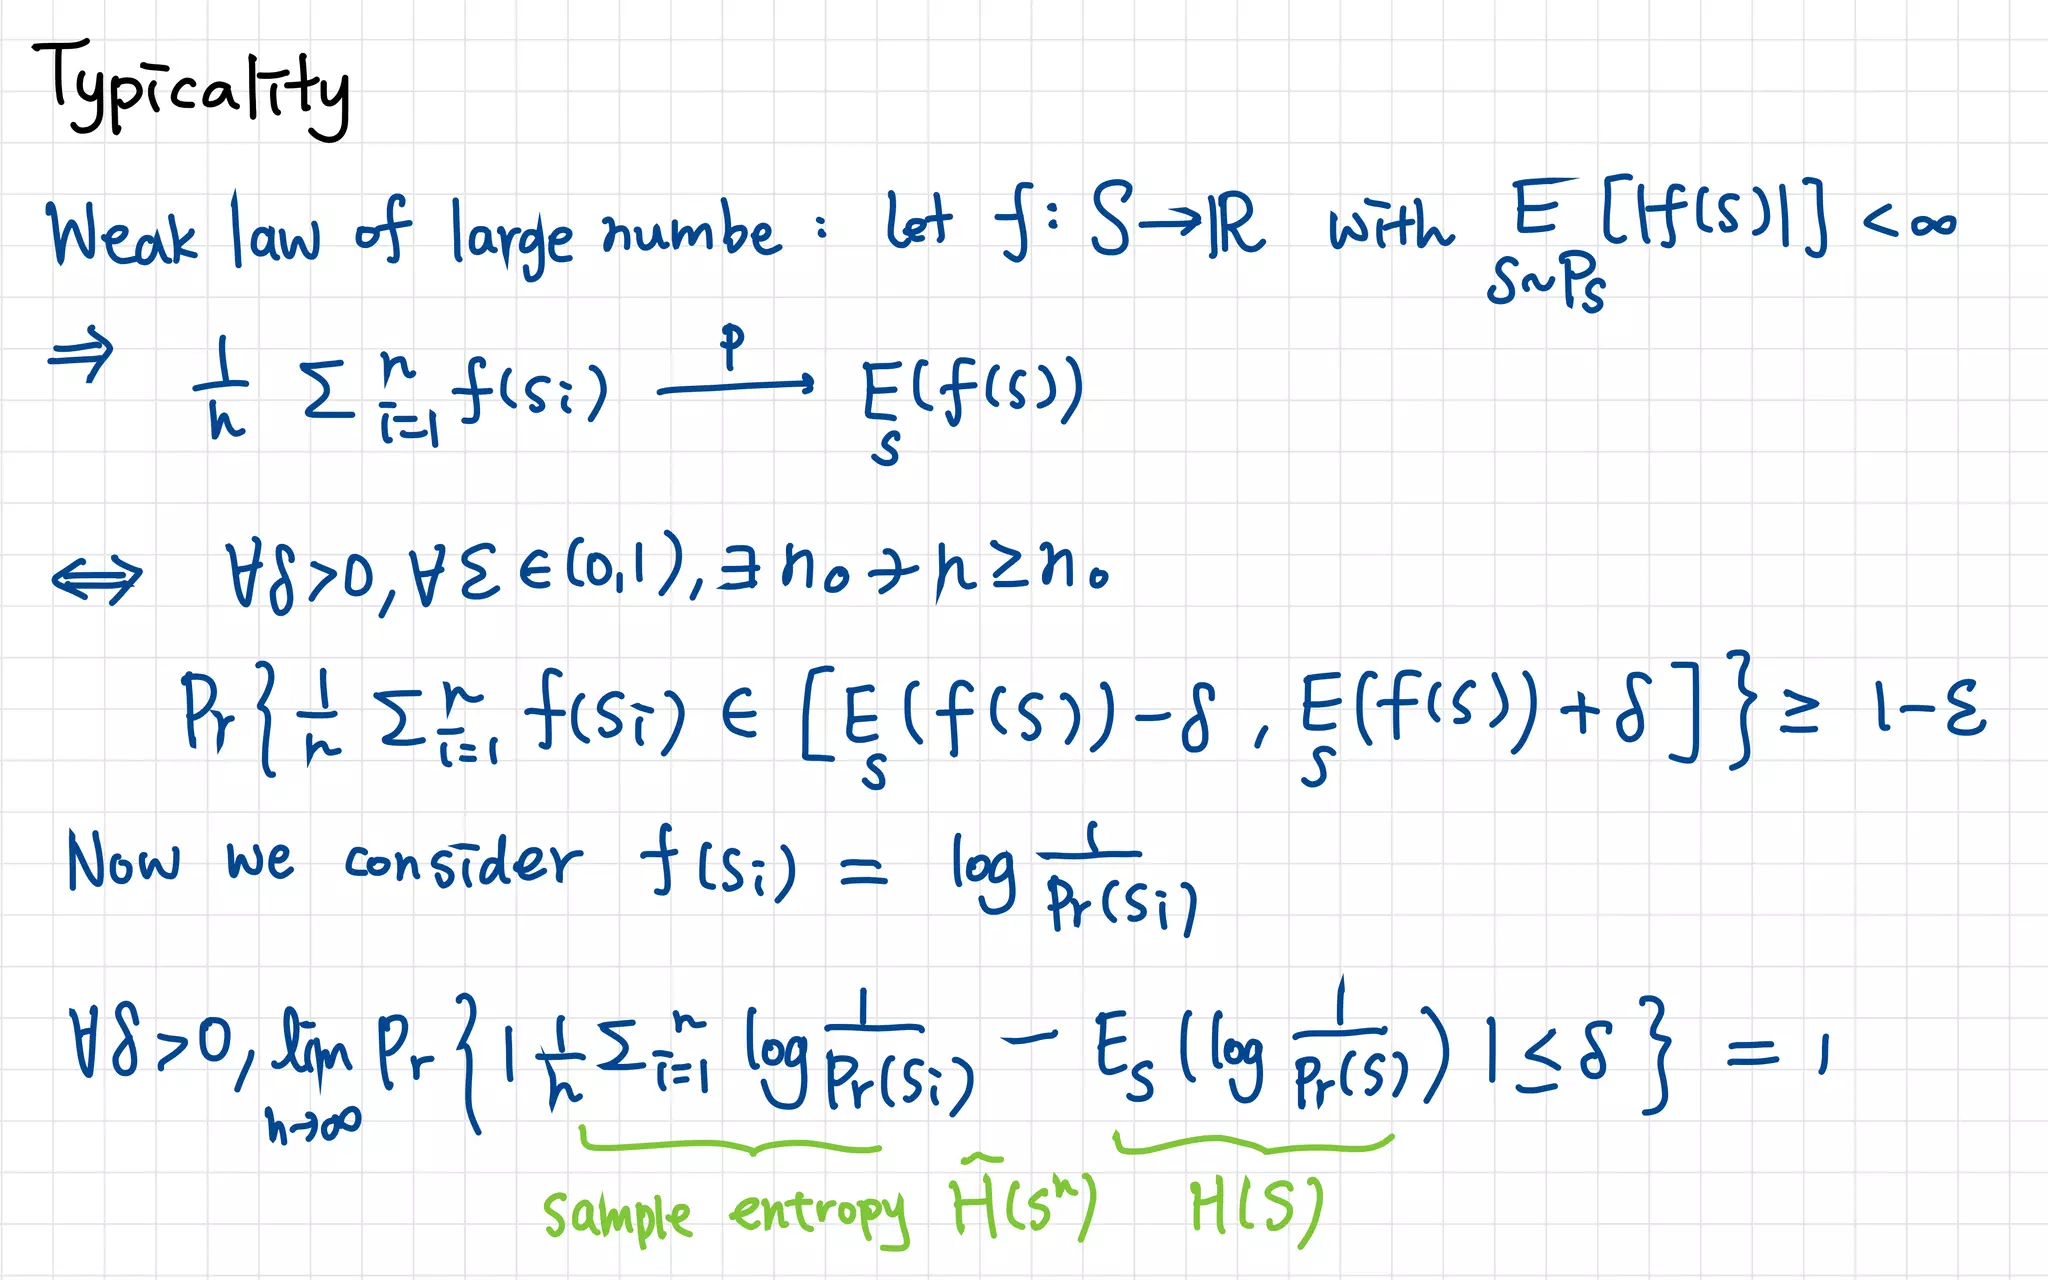 Typicality
Weak law of large numbe : let f : S → ℝ with E_{S∼P_S} [|f(S)|] < ∞
⇒ 1/n ∑_{i=1}^{n} f(s_i) →^{P} E_S (f(S))
⟺ ∀δ>0, ∀ε ∈ (0,1), ∃ n₀ ∍ n ≥ n₀
Pr{ 1/n ∑_{i=1}^{n} f(S_i) ∈ [ E_S (f(S)) − δ , E_S (f(S)) + δ ] } ≥ 1−ε
Now we consider f(S_i) = log 1/Pr(S_i)
∀δ>0, lim_{n→∞} Pr { | 1/n ∑_{i=1}^{n} log 1/Pr(S_i) − E_S (log 1/Pr(S)) | ≤ δ } = 1
sample entropy Ĥ(sⁿ) H(S)